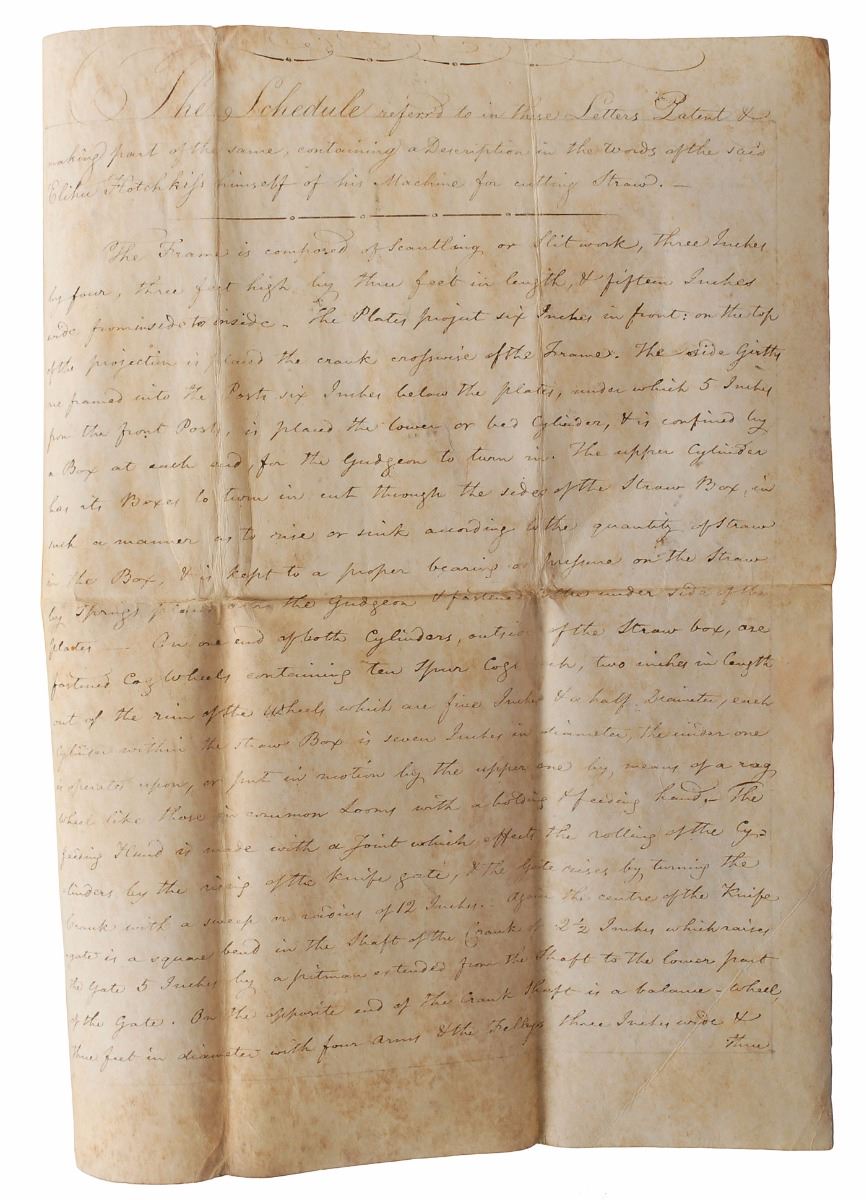 The Schedule referred to in these Letters Patent &
making part of the same, containing a Description in the words of the said
Elihu Hotchkiss himself of his Machine for cutting Straw. —
The Frame is composed of Scantling or Slit work, three Inches
by four, three feet high by three feet in length, & fifteen Inches
wide from inside to inside. The Plates project six Inches in front: on the top
of the projection is placed the crank crosswise of the Frame. The side Girths
are framed into the Posts six Inches below the plates, under which 5 Inches
from the front Posts, is placed the lower or bed Cylinder, & is confined by
a Box at each end, for the Gudgeon to turn in. The upper Cylinder
has its Boxes to turn in cut through the sides of the Straw Box, in
such a manner as to rise or sink according to the quantity of Straw
in the Box, & is kept to a proper bearing or pressure on the Straw
by Springs placed the Gudgeon & fastened to the under side of the
plates — On one end of both Cylinders, outside of the Straw box, are
fastened Cog Wheels containing ten Spur Cogs each, two inches in length
out of the rim of the Wheels which are five Inches & a half Diameter, each
Cylinder within the Straw Box is seven Inches in diameter, the under one
is operated upon, or put in motion by the upper one by, means of a rag
wheel like those in common Looms with a holding & feeding hand. The
feeding Hand is made with a Joint which effects the rolling of the Cy=
linders by the rising of the knife gate, & the Gate raises by turning the
Crank with a sweep or radius of 12 Inches. Again the centre of the Knife
gate is a square bend in the Shaft of the Crank of 2½ Inches which raises
the Gate 5 Inches by a pitman extended from the Shaft to the lower part
of the Gate. On the opposite end of the Crank Shaft is a balance-Wheel,
three feet in diameter with four Arms & the Felleys three Inches wide &
three